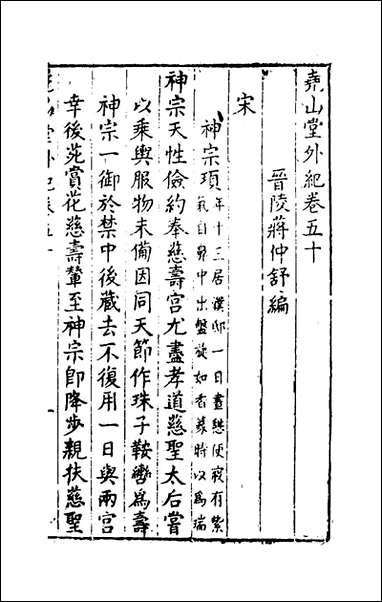 堯山堂外紀卷五十
晉陵蔣仲舒編
宋
神宗頊年十三居濮邸一日晝憩便寢有紫
氣自鼻中出盤旋如香篆時以為瑞
神宗天性儉約奉慈壽宮尤盡孝道慈聖太后嘗
以乘輿服物未備因同天節作珠子鞍轡為壽
神宗一御於禁中後藏去不復用一日與兩宮
幸後苑賞花慈壽輦至神宗即降步親扶慈聖